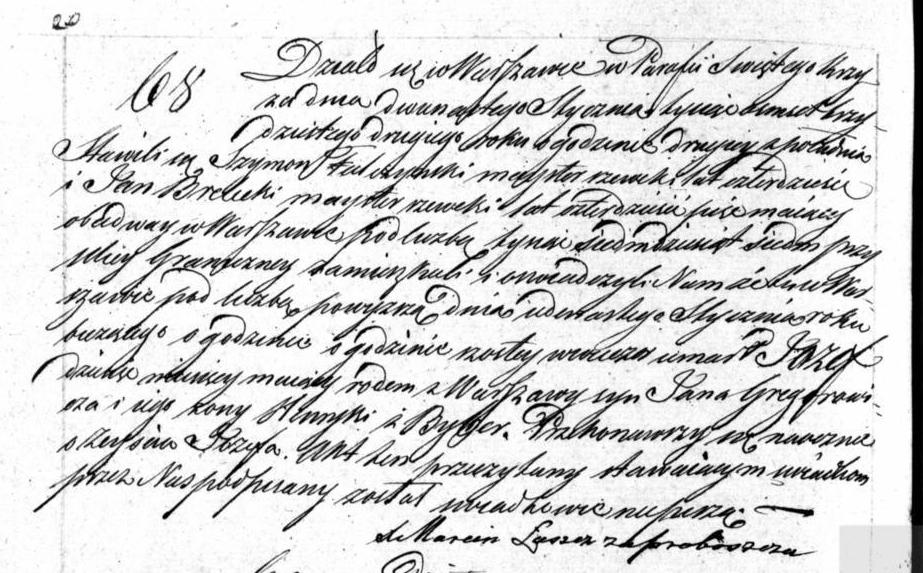 20
68
Działo się w Warszawie w Parafii Świętego Krzy-
ża dnia dwunastego Stycznia tysiąc ośmset trzy-
dziestego drugiego roku o godzinie drugiey z południa
Stawili się Szymon mayster szewcki lat czterdzieści
i Jan Brelecki mayster szewcki lat czterdzieści pięć maiący
obadway w Warszawie pod liczbą tysiąc siedmdziesiąt siedm przy
ulicy Graniczney zamieszkali i oświadczyli Nam że tu w War-
szawie pod liczbą powyższą dnia iedenastego Stycznia roku
bieżącego o godzinie o godzinie szostey wieczor umarł Józef
dziesięć miesięcy maiący rodem z Warszawy syn Jana Gregorowi-
cza i iego żony z Byger. Przekonawszy się naocznie
o zeyściu Józefa. Akt ten przeczytany stawaiącym świadkom
przez Nas podpisany został świadkowie niepiszą.
X Marcin Łyszcz za proboszcza